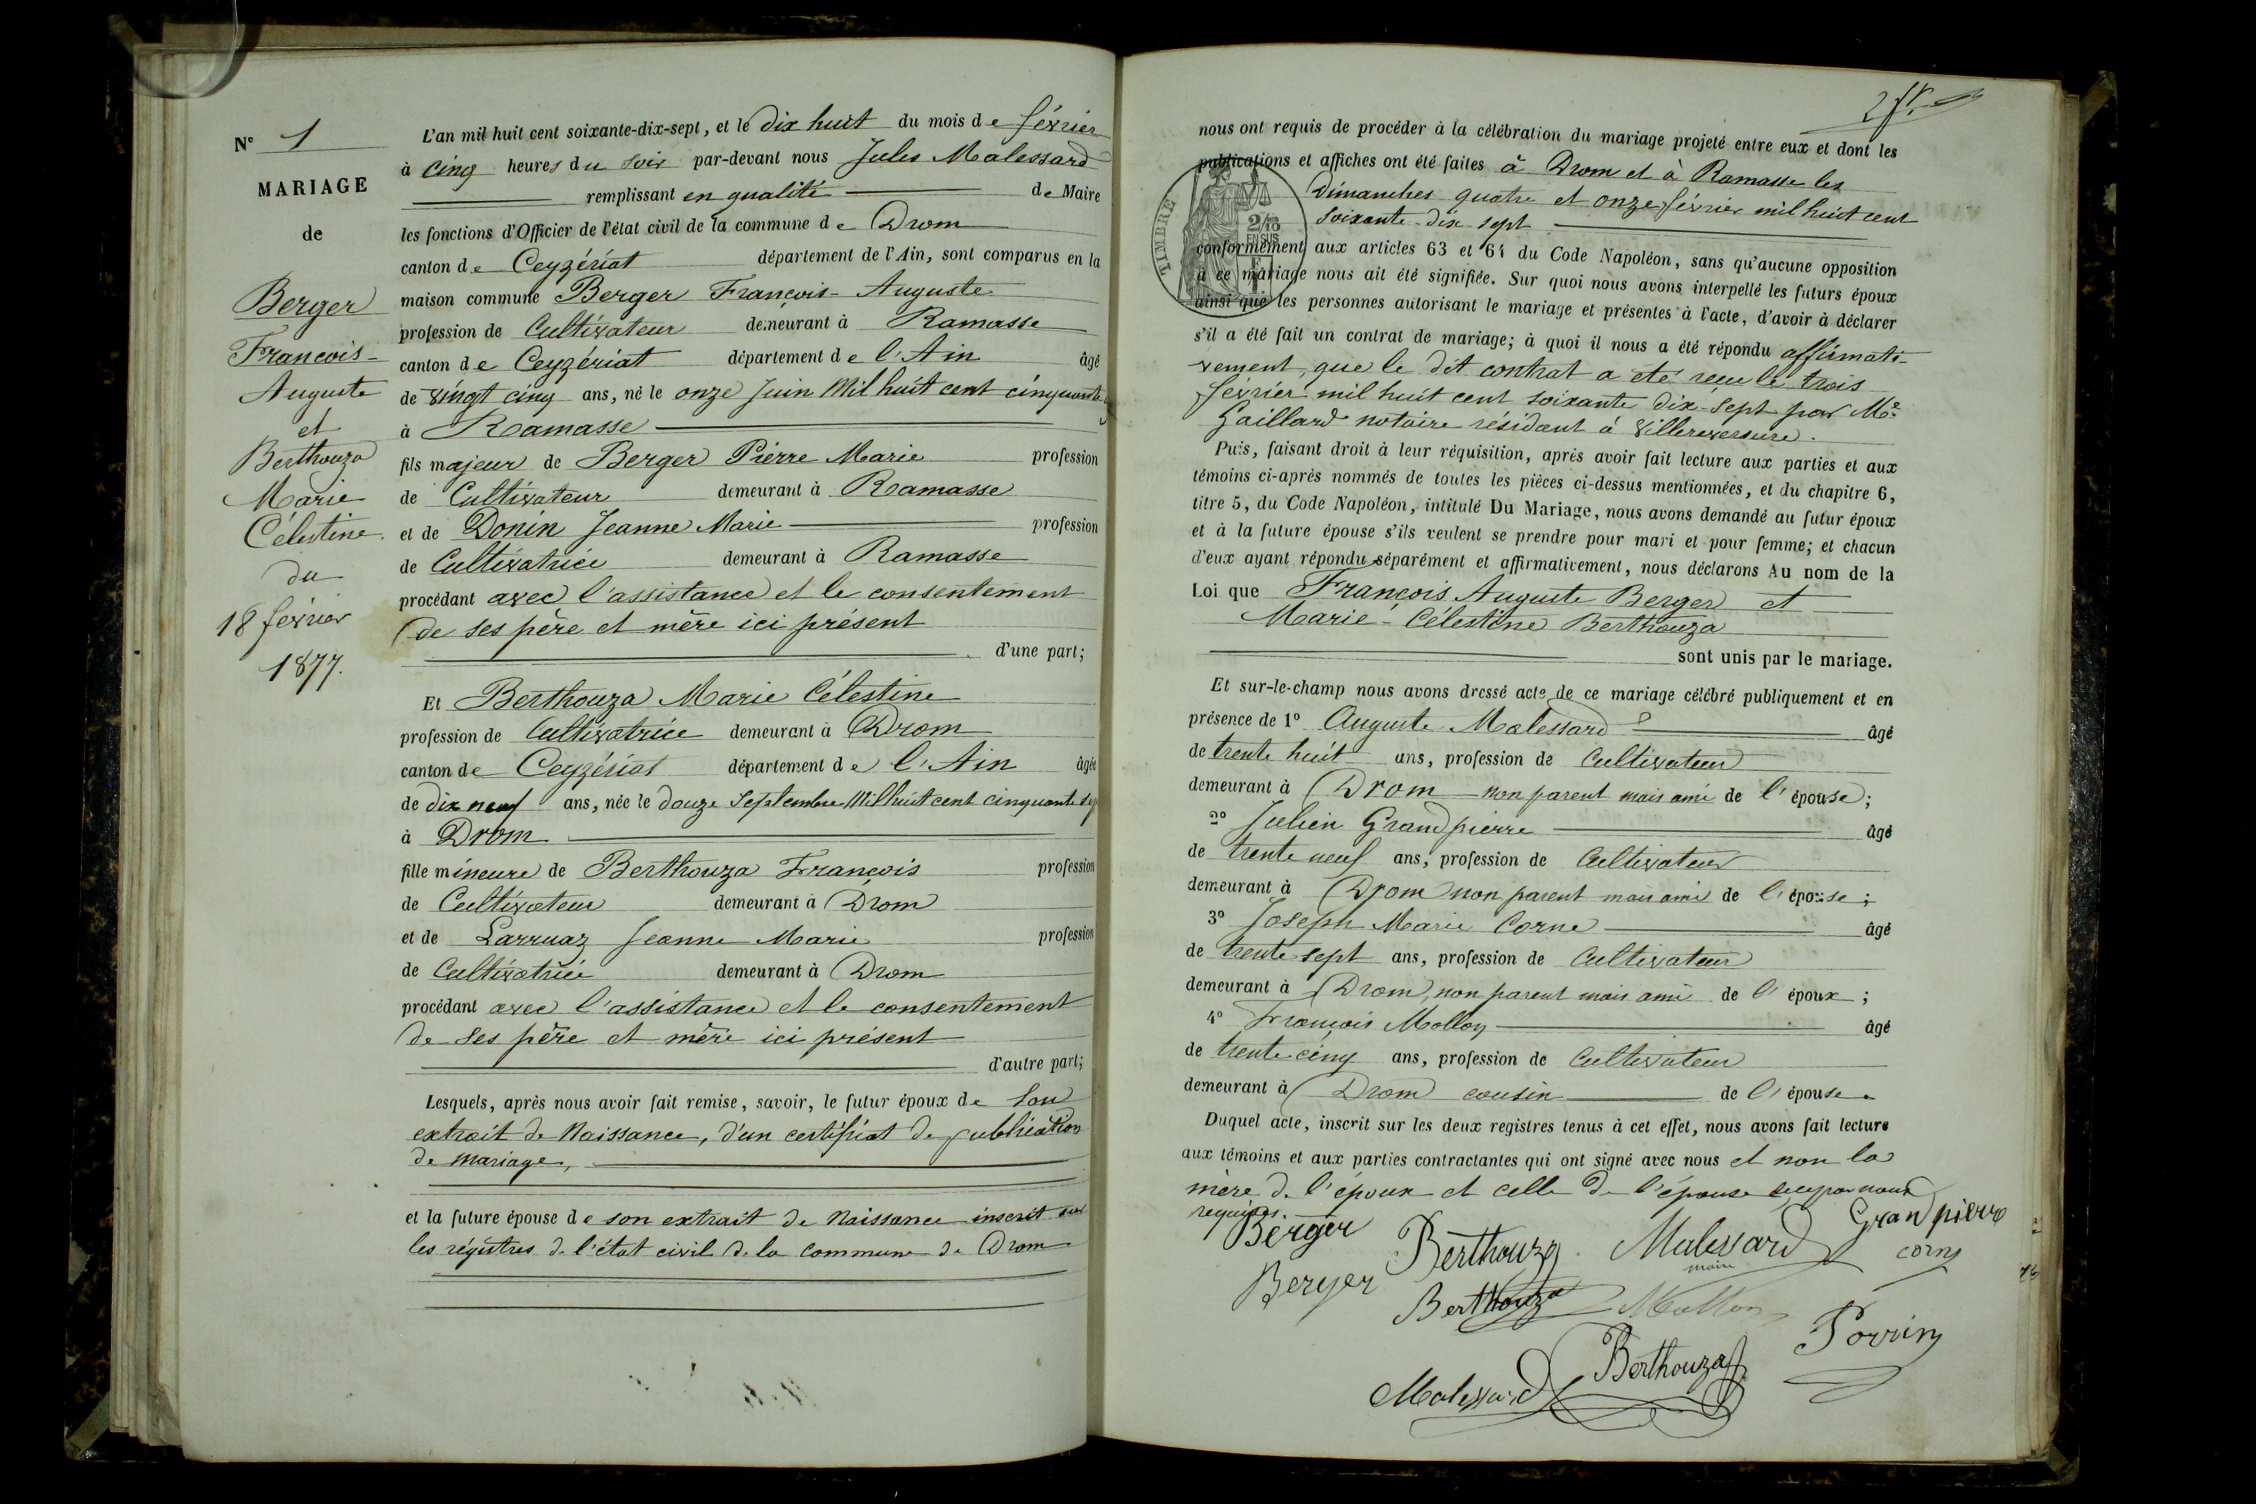 N° 1
MARIAGE
de
Berger
François-
Auguste
et
Berthouza
Marie
Célestine.
du
18 février
1877.
L'an mil huit cent soixante-dix-sept, et le dix huit du mois de février
à cinq heures du soir par-devant nous Jules Malessard
remplissant en qualité de Maire
les fonctions d'Officier de l'état civil de la commune de Drom
canton de Ceyzériat département de l'Ain, sont comparus en la
maison commune Berger François-Auguste
profession de Cultivateur demeurant à Ramasse
canton de Ceyzériat département de l'Ain âgé
de vingt cinq ans, né le onze Juin Mil huit cent cinquante
à Ramasse
fils majeur de Berger Pierre Marie profession
de Cultivateur demeurant à Ramasse
et de Donin Jeanne Marie profession
de Cultivatrice demeurant à Ramasse
procédant avec l'assistance et le consentement
de ses père et mère ici présent
d'une part;
Et Berthouza Marie Célestine
profession de Cultivatrice demeurant à Drom
canton de Ceyzériat département de l'Ain âgée
de dix neuf ans, née le douze Septembre Mil huit cent cinquante sep
à Drom
fille mineure de Berthouza François profession
de Cultivateur demeurant à Drom
et de Larruaz Jeanne Marie profession
de Cultivatrice demeurant à Drom
procédant avec l'assistance et le consentement
de ses père et mère ici présent
d'autre part;
Lesquels, après nous avoir fait remise, savoir, le futur époux de son
extrait de Naissance, d'un certificat de publication
de mariage,
et la future épouse de son extrait de Naissance inscrit sur
les régistres de l'état civil de la commune de Drom
2 fr.
nous ont requis de procéder à la célébration du mariage projeté entre eux et dont les
publications et affiches ont été faites à Drom et à Ramasse les
Dimanches quatre et onze février mil huit cent
soixante-dix-sept
TIMBRE
2/10
EN SUS
conformément aux articles 63 et 64 du Code Napoléon, sans qu'aucune opposition
à ce mariage nous ait été signifiée. Sur quoi nous avons interpellé les futurs époux
ainsi que les personnes autorisant le mariage et présentes à l'acte, d'avoir à déclarer
s'il a été fait un contrat de mariage; à quoi il nous a été répondu affirmati-
vement, que le dit contrat a été reçu le trois
février mil huit cent soixante dix-sept par Me
Gaillard notaire résidant à Villereversure.
Puis, faisant droit à leur réquisition, après avoir fait lecture aux parties et aux
témoins ci-après nommés de toutes les pièces ci-dessus mentionnées, et du chapitre 6,
titre 5, du Code Napoléon, intitulé Du Mariage, nous avons demandé au futur époux
et à la future épouse s'ils veulent se prendre pour mari et pour femme; et chacun
d'eux ayant répondu séparément et affirmativement, nous déclarons Au nom de la
Loi que François Auguste Berger et
Marie-Célestine Berthouza
sont unis par le mariage.
Et sur-le-champ nous avons dressé acte de ce mariage célébré publiquement et en
présence de 1° Auguste Malessard âgé
de trente huit ans, profession de Cultivateur
demeurant à Drom non parent mais ami de l'épouse;
2° Julien Grandpierre âgé
de trente neuf ans, profession de Cultivateur
demeurant à Drom non parent mais ami de l'épouse;
3° Joseph Marie Corne âgé
de trente sept ans, profession de Cultivateur
demeurant à Drom, non parent mais ami de l'époux;
4° François Mollon âgé
de trente cinq ans, profession de Cultivateur
demeurant à Drom cousin de l'épouse.
Duquel acte, inscrit sur les deux registres tenus à cet effet, nous avons fait lecture
aux témoins et aux parties contractantes qui ont signé avec nous et non la
mère de l'époux et celle de l'épouse de par nous
requises.
Berger Berthouza Malessard Grandpierre
maire corne
Berger Berthouza Mollon
Malessard Berthouza